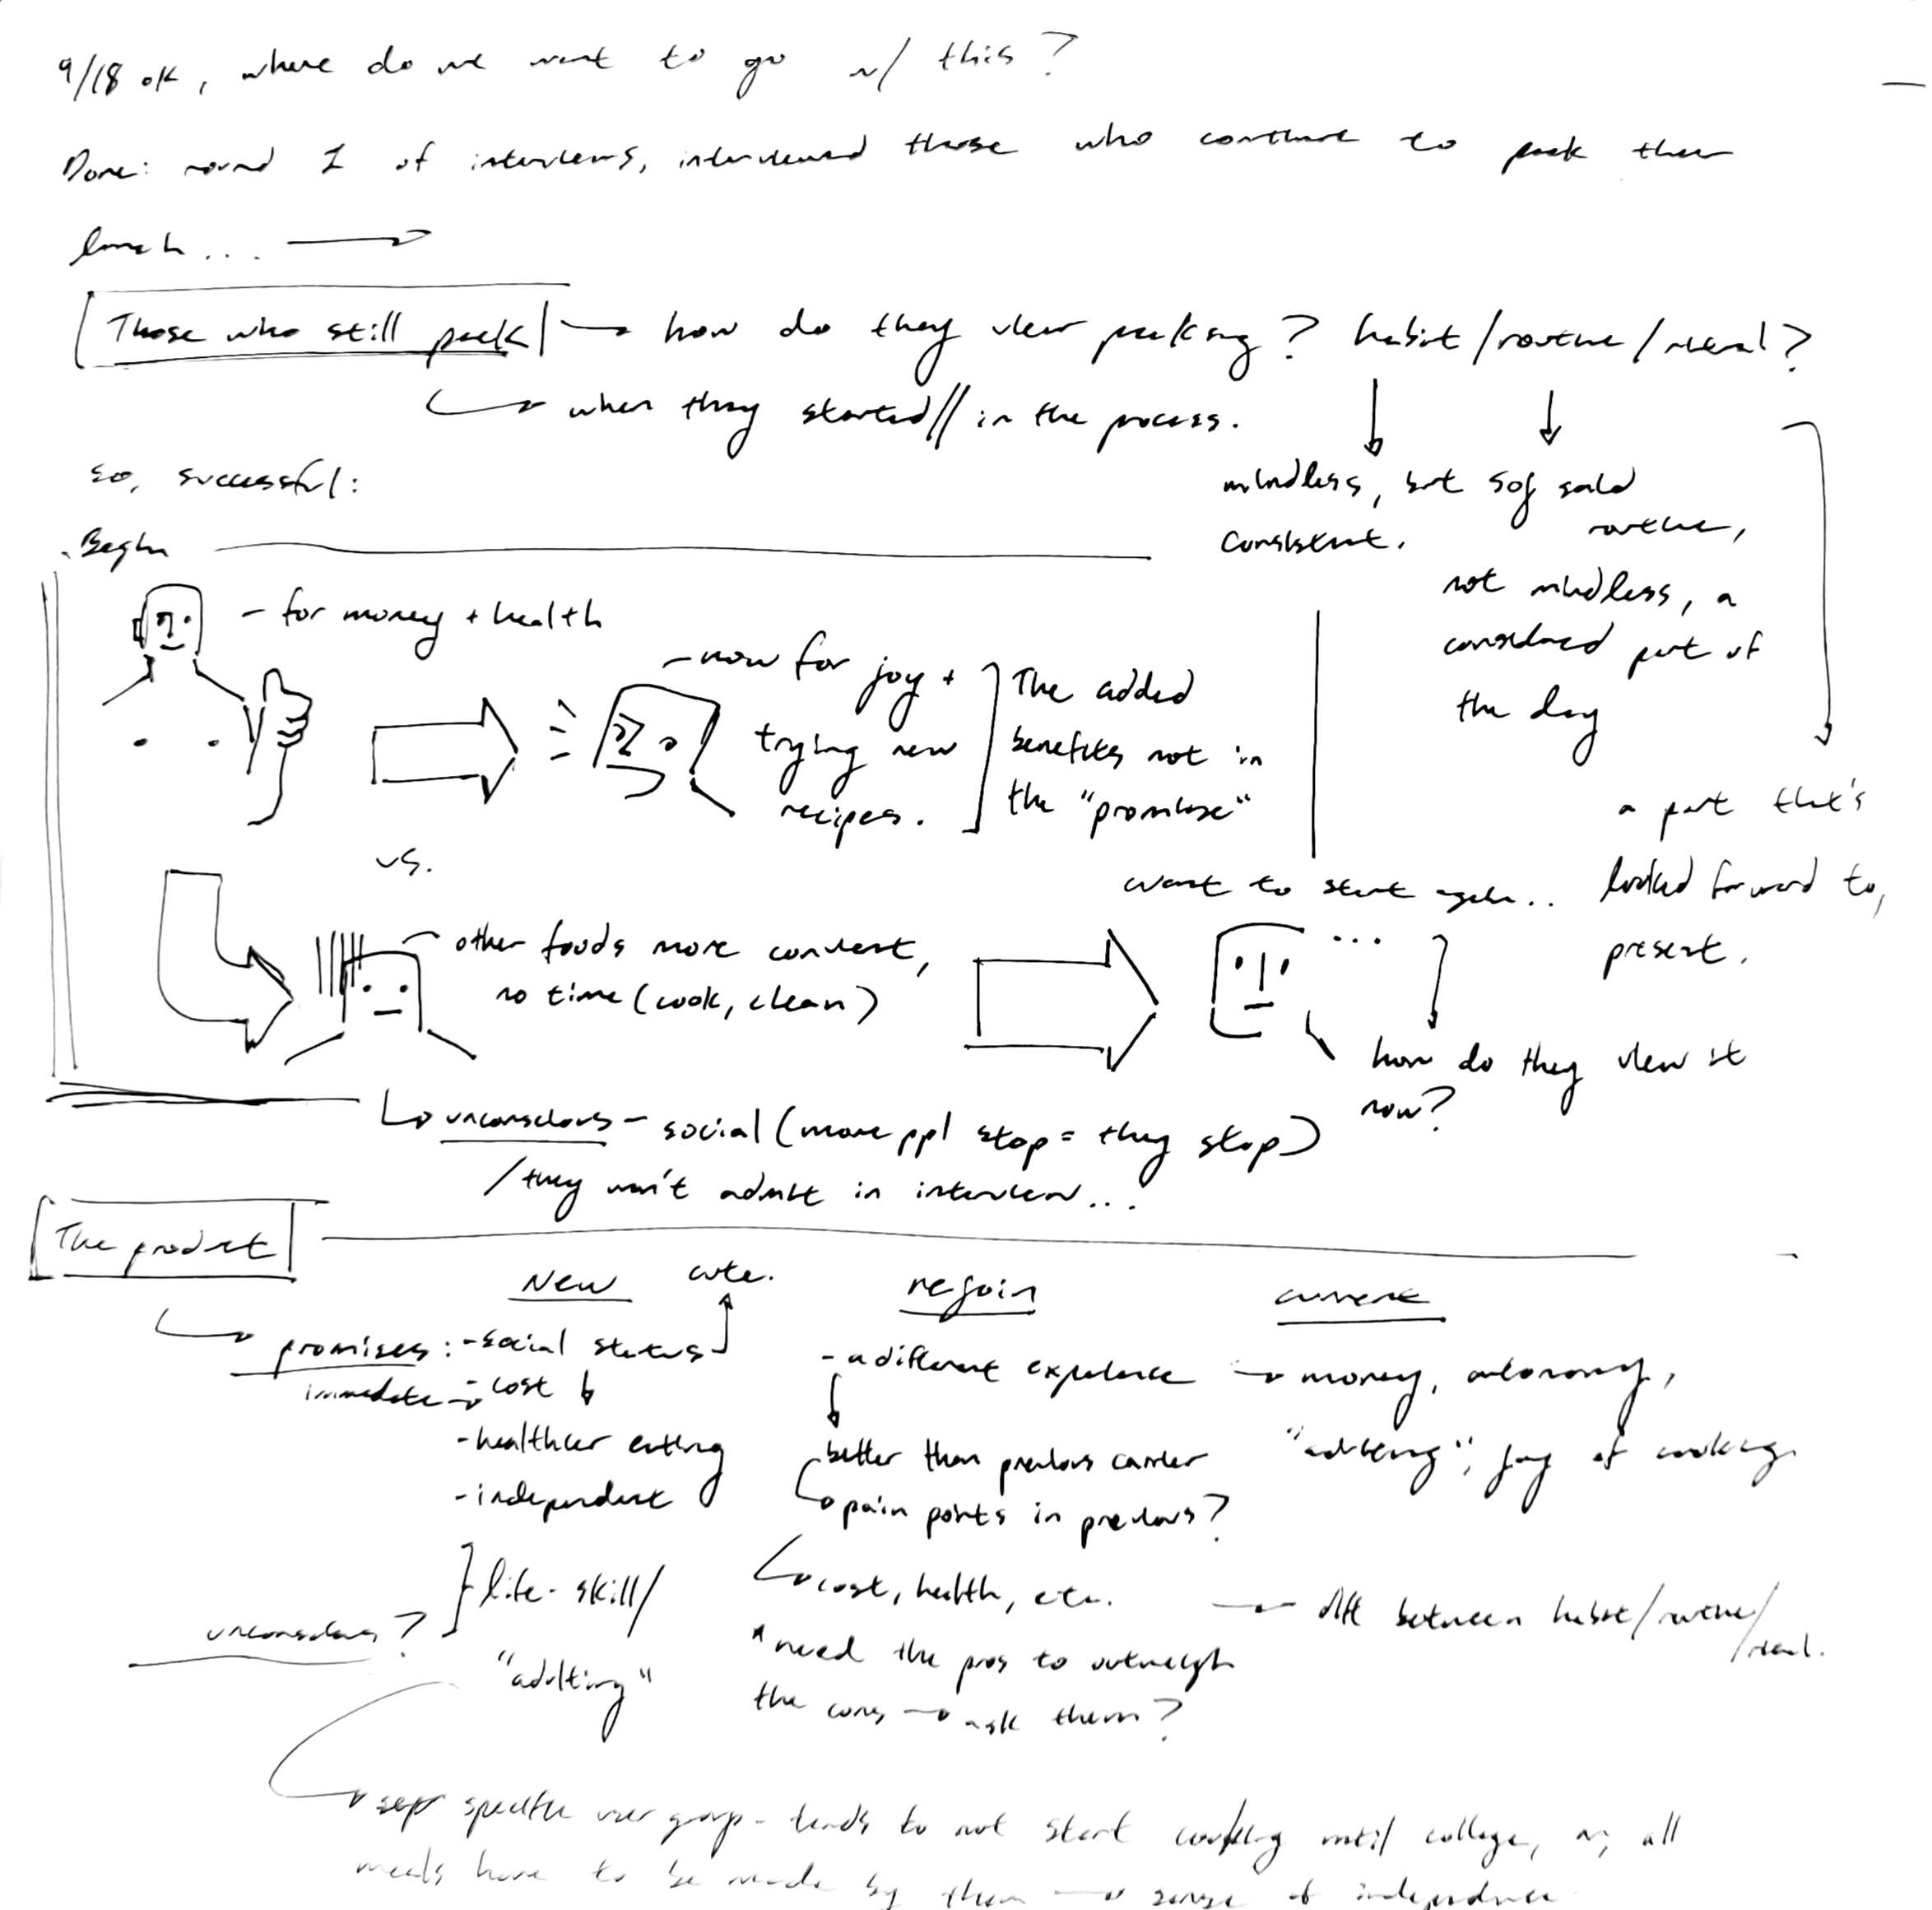 9/18 ok, where do we want to go w/ this?
Done: round 1 of interviews, interviewed those who continue to pack their
lunch...
Those who still pack
how do they view packing? habit/routine/ritual?
when they started// in the process.
so, successful:
mindless, but
consistent.
solid
routine,
not mindless, a
considered part of
the day
a part that's
looked forward to,
present.
Begin
- for money + health
- now for joy +
trying new
recipes.
The added
benefits not in
the "promise"
vs.
other foods more convient,
no time (cook, clean)
want to start again..
...
how do they view it
now?
unconscious - social (more ppl stop = they stop)
/they won't admit in interview...
The product
New
cute.
promises: - social status
immediate - cost ↓
- healthier eating
- independent
unconscious?
life-skill/
"adulting"
rejoin
- a different experience
better than previous carrier
pain points in previous?
cost, health, etc.
*need the pros to outweigh
the cons → ask them?
current
money, autonomy,
"adulting", joy of cooking
diff between habit/routine/
/ritual.
specific user group - tends to not start cooking until college, all
meals have to be made by them → sense of independence